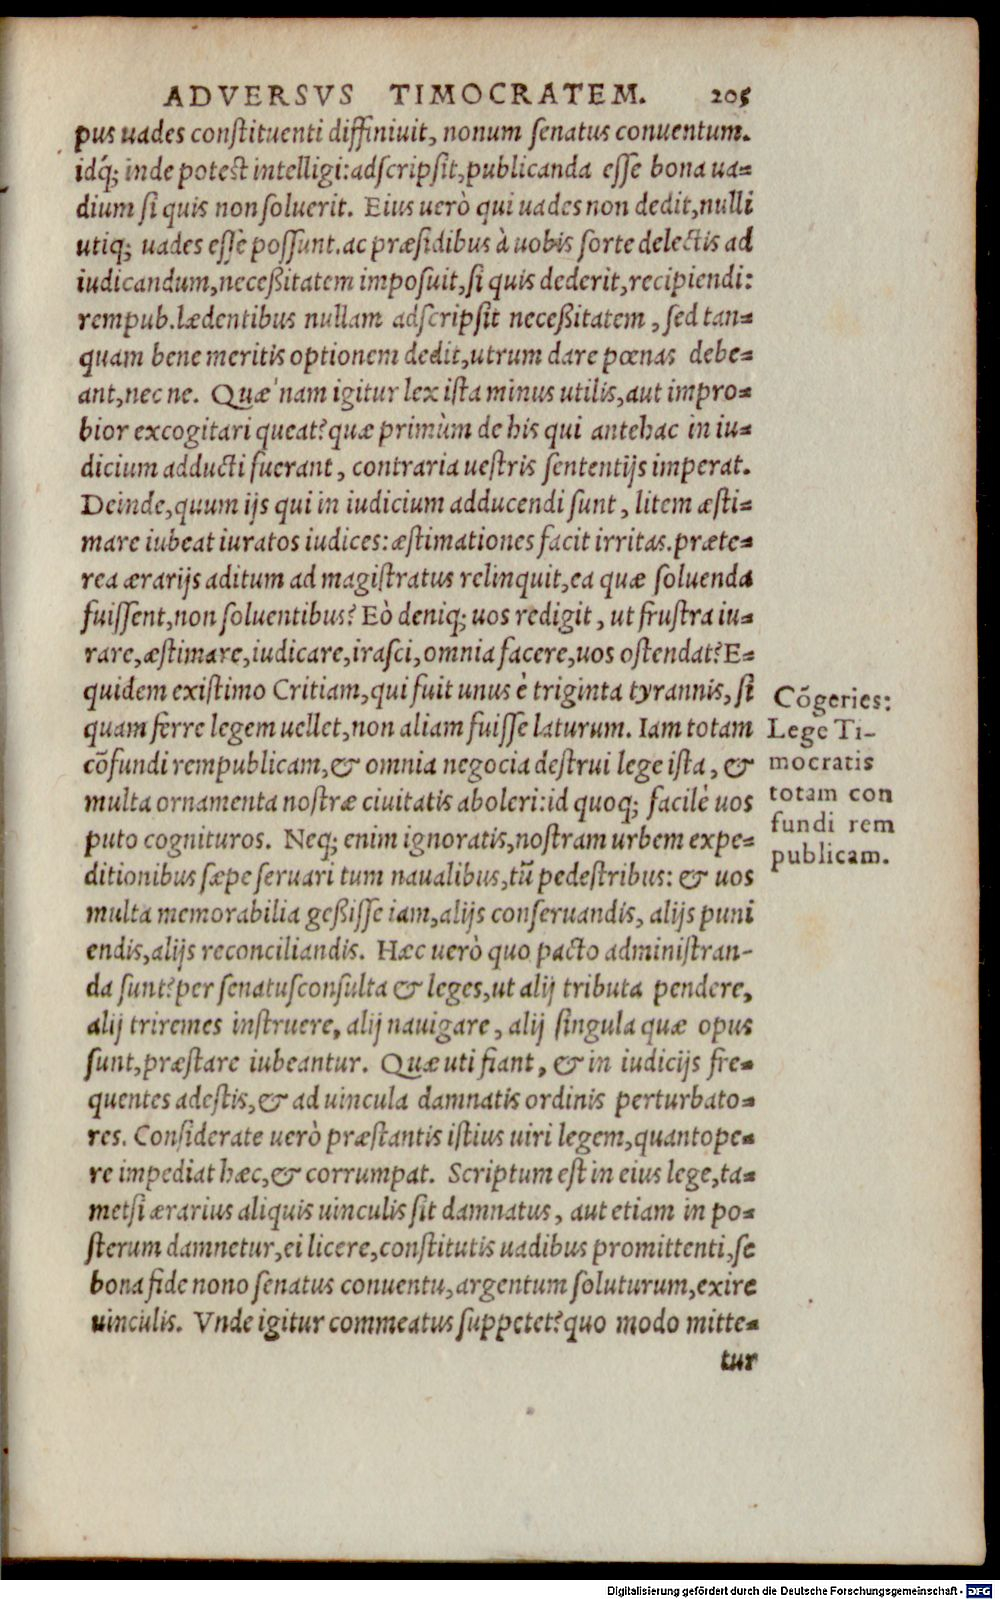 ADVERSVS TIMOCRATEM. 205
pus uades constituenti diffiniuit, nonum senatus conuentum.
idq́; inde potest intelligi: adscripsit, publicanda esse bona ua=
dium si quis non soluerit. Eius uerò qui uades non dedit, nulli
utiq; uades esse possunt. ac præsidibus à uobis sorte delectis ad
iudicandum, neceßitatem imposuit, si quis dederit, recipiendi:
rempub. lædentibus nullam adscripsit neceßitatem, sed tan=
quam bene meritis optionem dedit, utrum dare pœnas debe=
ant, nec ne. Quæ'nam igitur lex ista minus utilis, aut impro=
bior excogitari queat? quæ primùm de his qui antehac in iu=
dicium adducti fuerant, contraria uestris sententijs imperat.
Deinde, quum ijs qui in iudicium adducendi sunt, litem æsti=
mare iubeat iuratos iudices: æstimationes facit irritas. præte=
rea ærarijs aditum ad magistratus relinquit, ea quæ soluenda
fuissent, non soluentibus? Eò deniq; uos redigit, ut frustra iu=
rare, æstimare, iudicare, irasci, omnia facere, uos ostendat? E=
quidem existimo Critiam, qui fuit unus è triginta tyrannis, si
quam ferre legem uellet, non aliam fuisse laturum. Iam totam
cõfundi rempublicam, & omnia negocia destrui lege ista, &
multa ornamenta nostræ ciuitatis aboleri: id quoq; facilè uos
puto cognituros. Neq; enim ignoratis, nostram urbem expe=
ditionibus sæpe seruari tum naualibus, tũ pedestribus: & uos
multa memorabilia geßisse iam, alijs conseruandis, alijs puni
endis, alijs reconciliandis. Hæc uerò quo pacto administran-
da sunt? per senatusconsulta & leges, ut alij tributa pendere,
alij triremes instruere, alij nauigare, alij singula quæ opus
sunt, præstare iubeantur. Quæ uti fiant, & in iudicijs fre=
quentes adestis, & ad uincula damnatis ordinis perturbato=
res. Considerate uerò præstantis istius uiri legem, quantope=
re impediat hæc, & corrumpat. Scriptum est in eius lege, ta=
metsi ærarius aliquis uinculis sit damnatus, aut etiam in po=
sterum damnetur, ei licere, constitutis uadibus promittenti, se
bona fide nono senatus conuentu, argentum soluturum, exire
uinculis. Vnde igitur commeatus suppetet? quo modo mitte=
tur
Cõgeries:
Lege Ti-
mocratis
totam con
fundi rem
publicam.
Digitalisierung gefördert durch die Deutsche Forschungsgemeinschaft - DFG